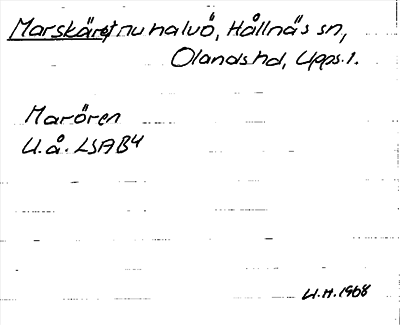 Marskäret, nu halvö, Hållnäs sn,
Olands hd, Upps. l.
Marören
U.å. LSA B4
U.H. 1968